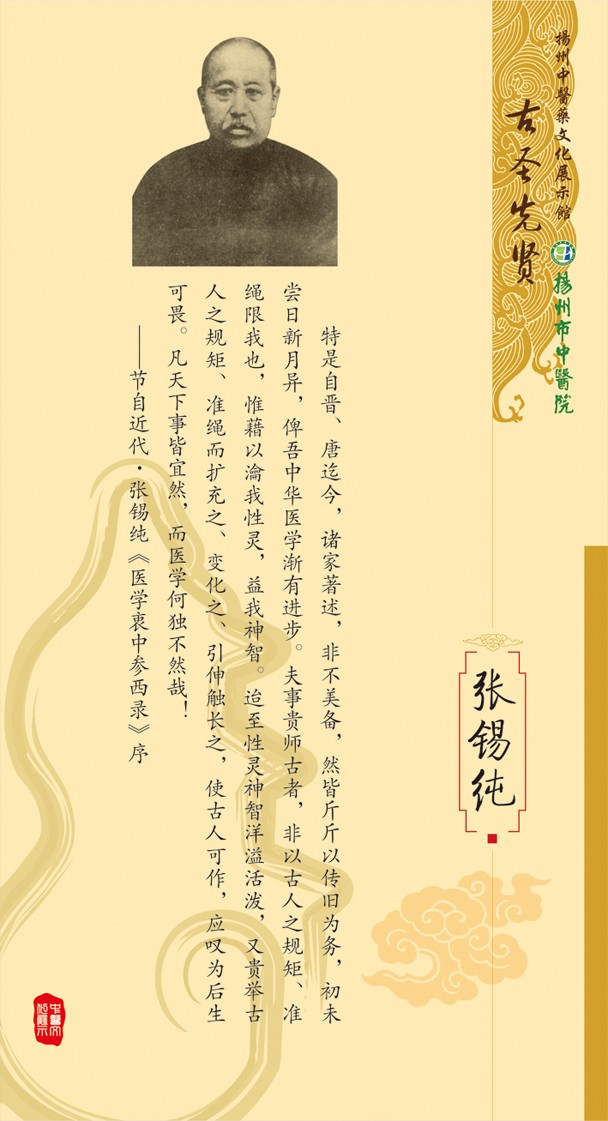 揚州中醫藥文化展示館
古圣先贤
揚州市中醫院
张锡纯
特是自晋、唐迄今，诸家著述，非不美备，然皆斤斤以传旧为务，初未
尝日新月异，俾吾中华医学渐有进步。夫事贵师古者，非以古人之规矩、准
绳限我也，惟藉以瀹我性灵，益我神智。迨至性灵神智洋溢活泼，又贵举古
人之规矩、准绳而扩充之、变化之、引伸触长之，使古人可作，应叹为后生
可畏。凡天下事皆宜然，而医学何独不然哉！
——节自近代·张锡纯《医学衷中参西录》序